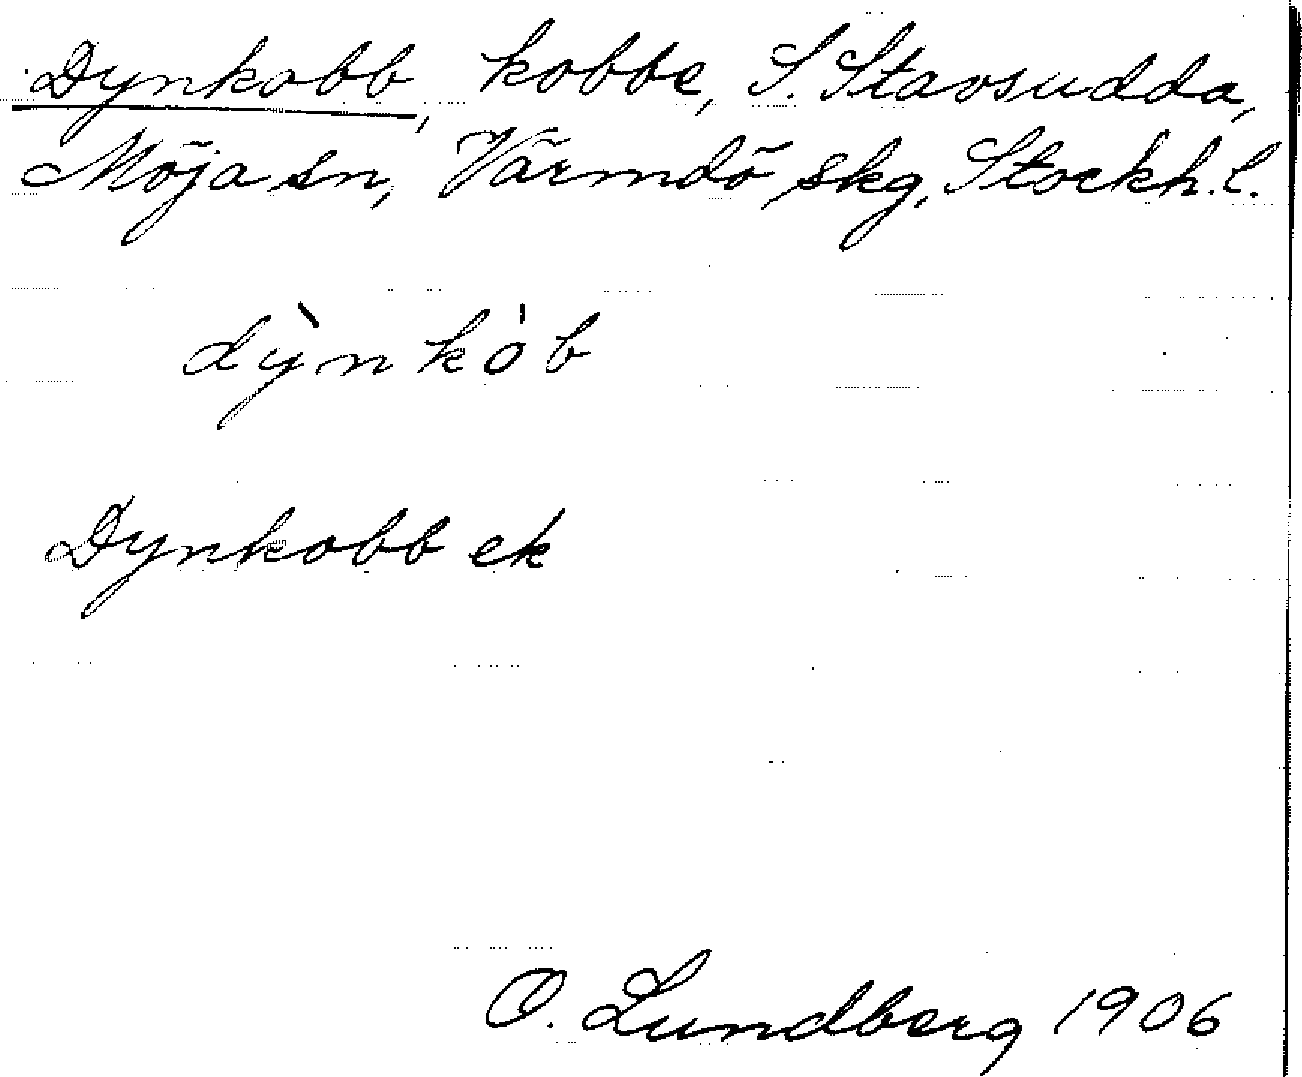 Dynkobb, kobbe, S. Stavsudda,
Möja sn, Värmdö skg, Stockh. l.
dỳ̖nkȯ̀b
Dynkobb ek
O. Lundberg 1906